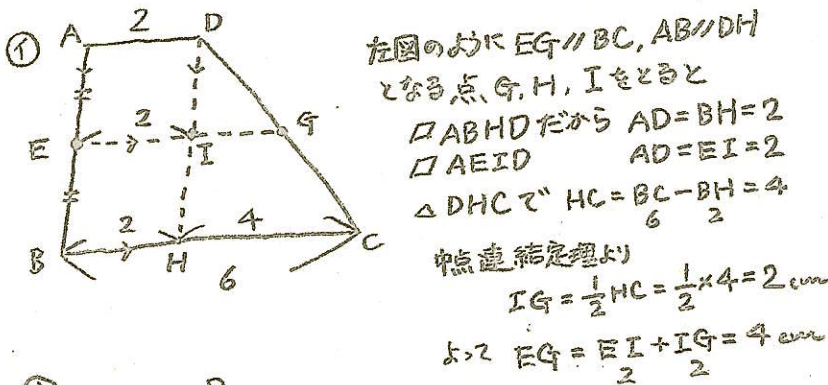 イ
A 2 D
E 2 I G
B 2 H 4 C
6
左図のように EG//BC, AB//DH
となる点、G, H, I をとると
▱ABHDだから AD=BH=2
▱AEID AD=EI=2
△DHCで HC=BC-BH=4
6 2
中点連結定理より
IG=1/2HC=1/2×4=2cm
よって EG=EI+IG=4cm
2 2